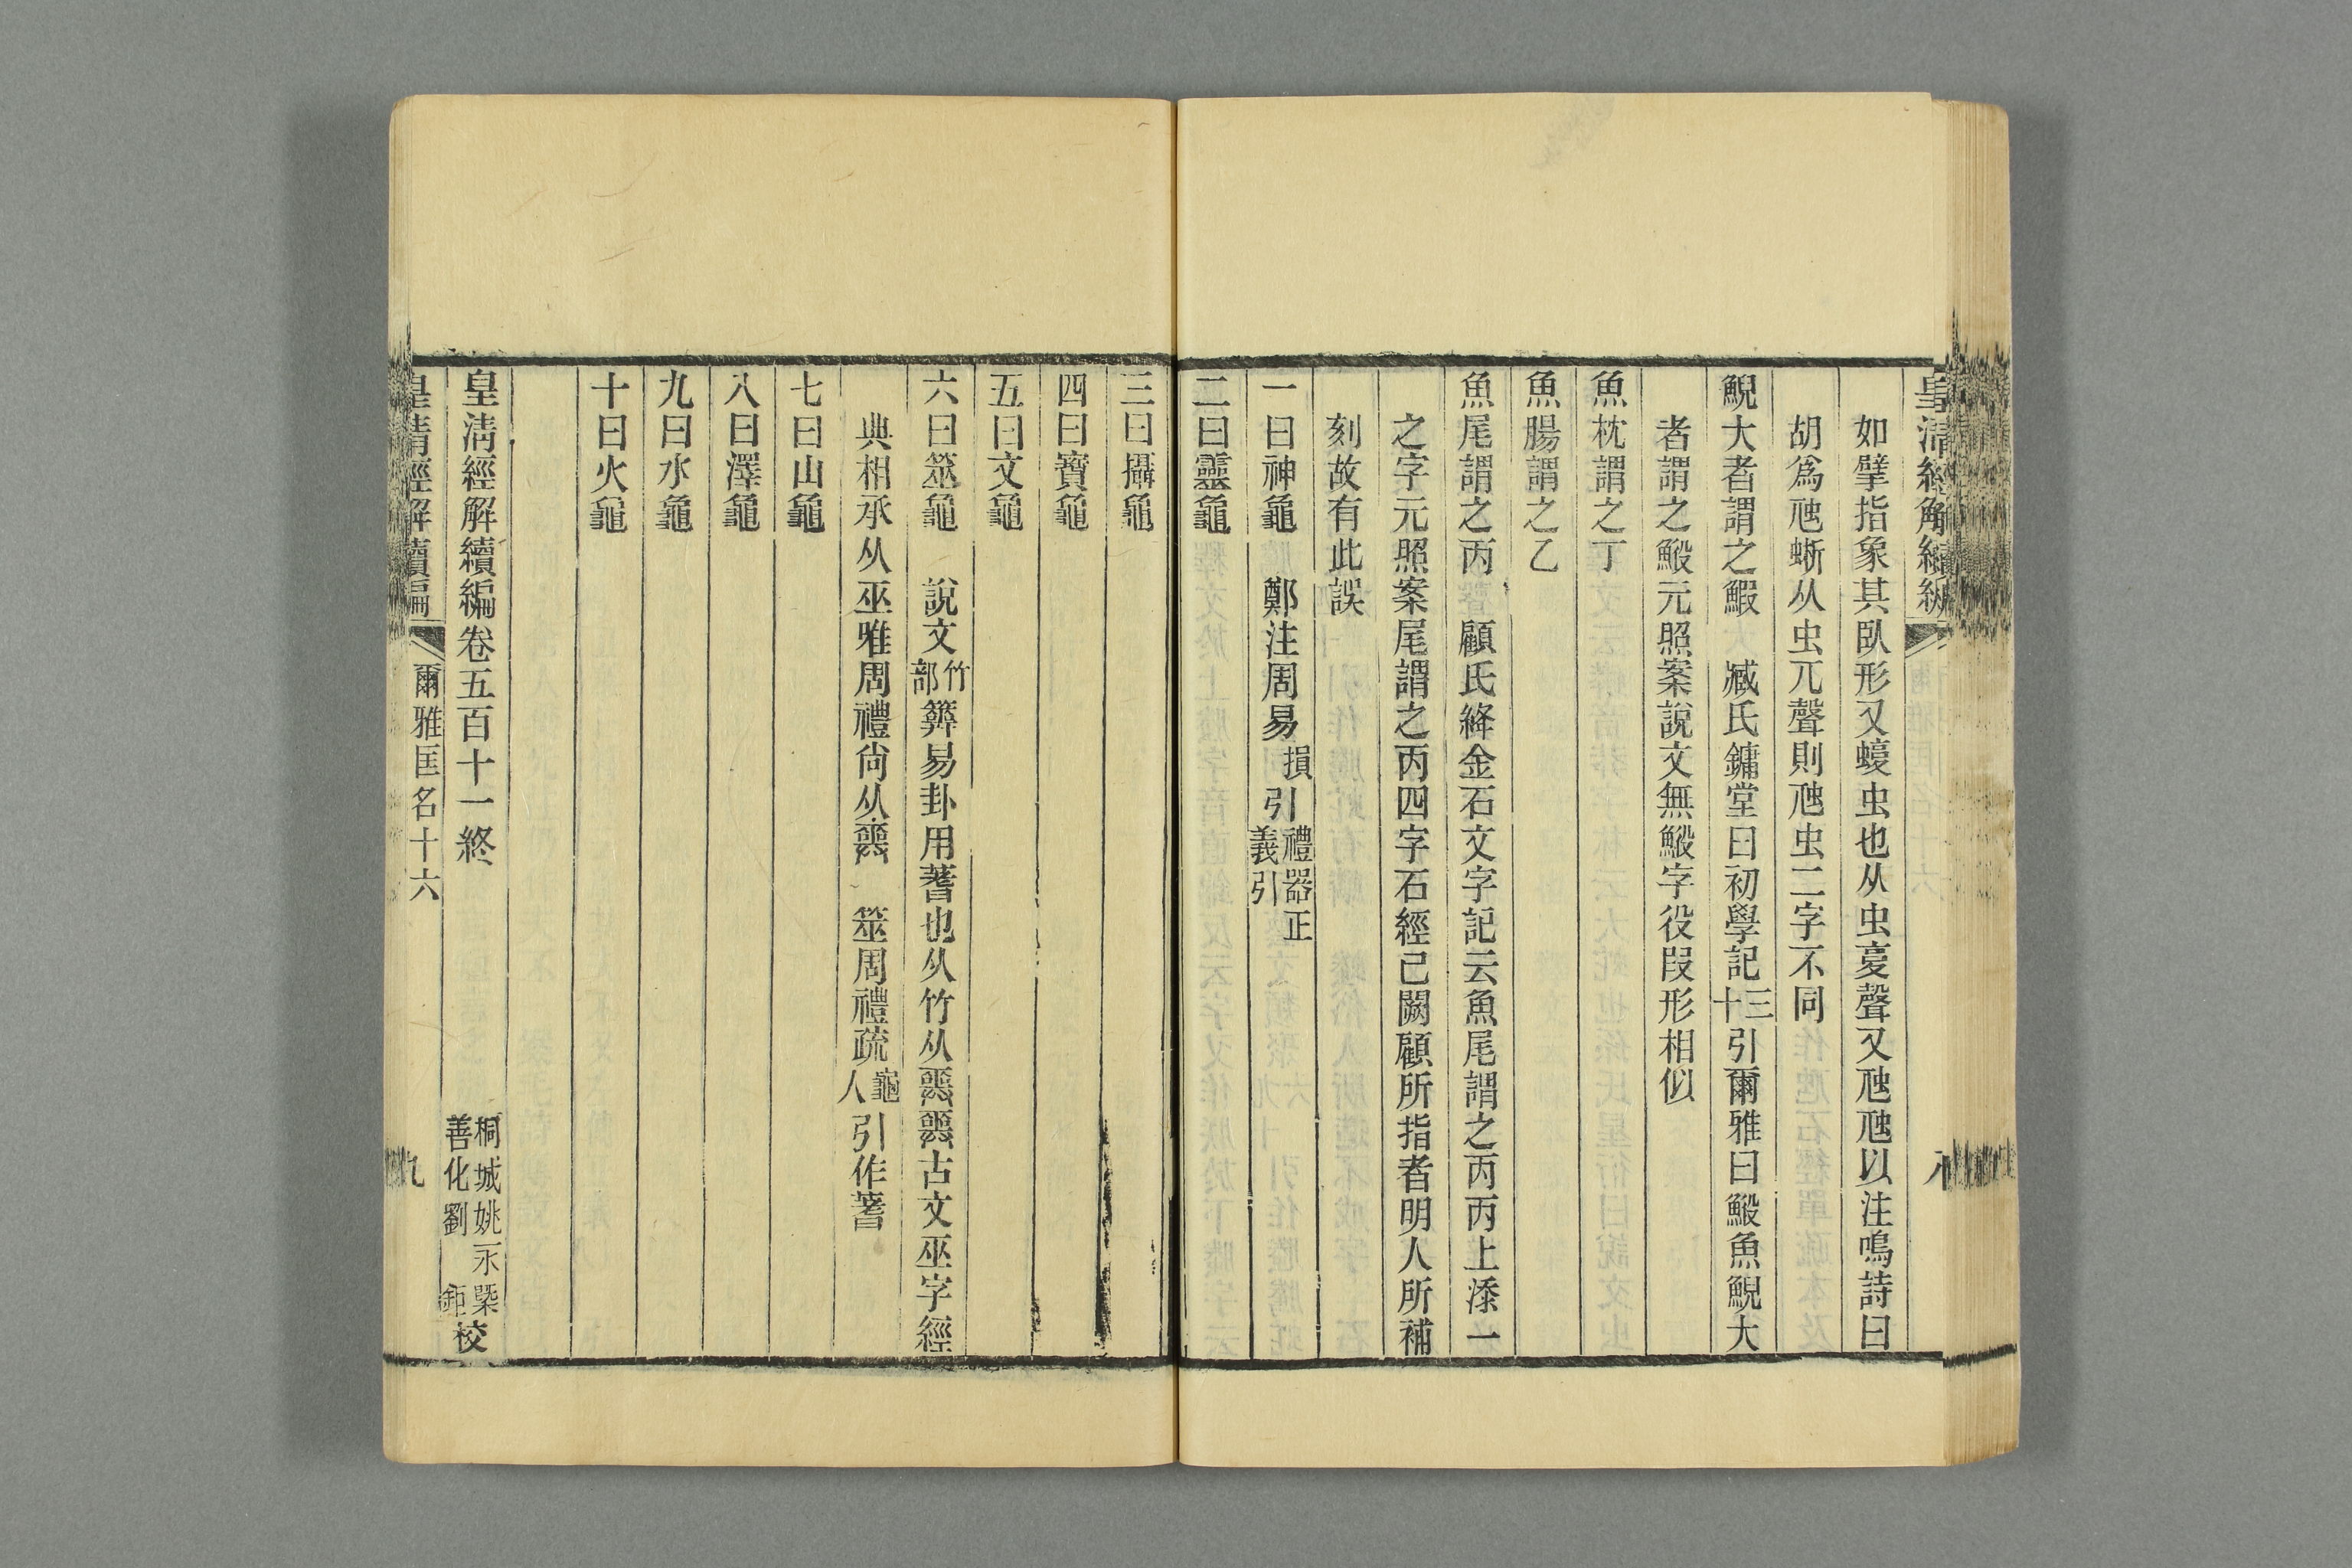 皇清經解續編
如擘指象其臥形又蝮虫也从虫复聲又虺虺以注鳴詩曰
胡爲虺蜥从虫兀聲則虺虫二字不同
鯢大者謂之鰕 臧氏鏞堂曰初學記三十引爾雅曰鰕魚鯢大
者謂之鰕元照案說文無鰕字役叚形相似
魚枕謂之丁
魚腸謂之乙
魚尾謂之丙 顧氏絳金石文字記云魚尾謂之丙丙上添一
之字元照案尾謂之丙四字石經已闕顧所指者明人所補
刻故有此誤
一曰神龜 鄭注周易損引禮器正義引
二曰靈龜
三曰攝龜
四曰寶龜
五曰文龜
六曰筮龜 說文竹部簭易卦用蓍也从竹从𢍮𢍮古文巫字經
典相承从巫唯周禮尚从𢍮 筮周禮疏龜人引作蓍
七曰山龜
八曰澤龜
九曰水龜
十曰火龜
皇清經解續編卷五百十一終
桐城姚永㮣
善化劉 鉅校
皇清經解續編 爾雅匡名十六 九